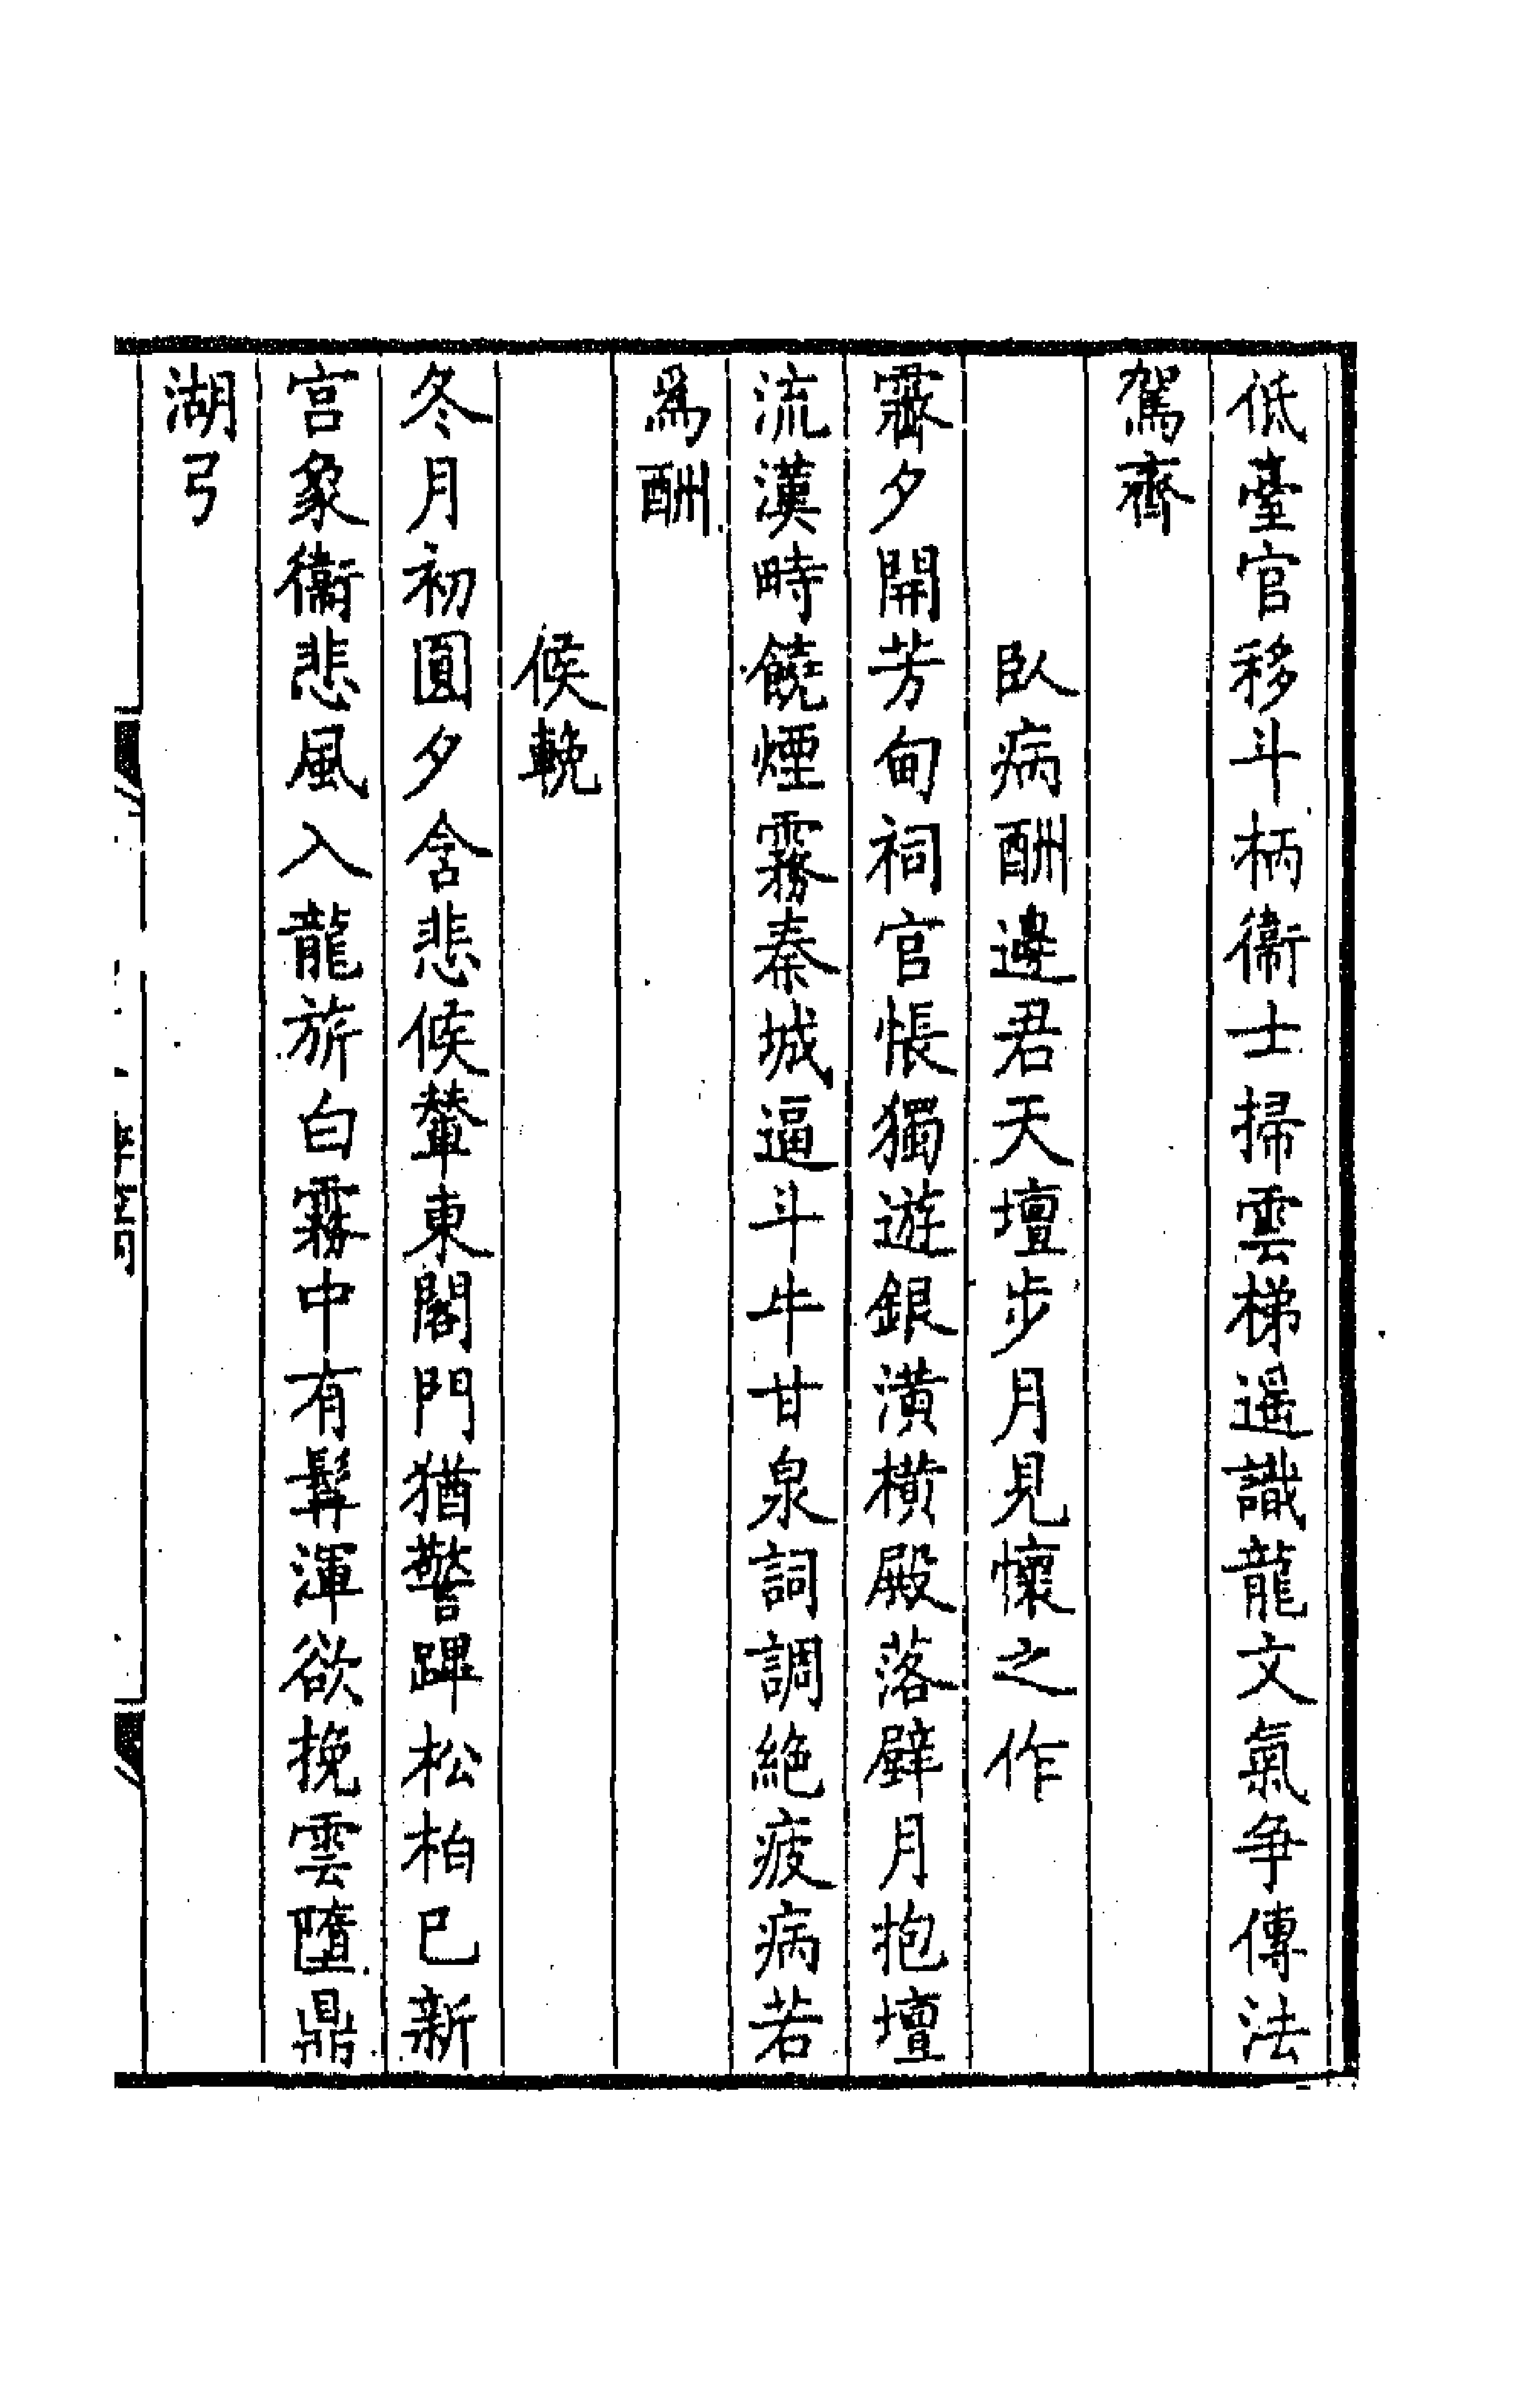 低臺官移斗柄衞士掃雲梯遥識龍文氣争傳法
駕齊
臥病酬邊君天壇步月見懷之作
霽夕開芳甸祠官悵獨遊銀潢横殿落壁月抱壇
流漢畤饒煙霧秦城逼斗牛甘泉詞調絶疲病若
爲酬
候輓
冬月初圓夕含悲候輦東閣門猶警蹕松柏已新
宫象衞悲風入龍旂白霧中有髯渾欲挽雲墮鼎
湖弓